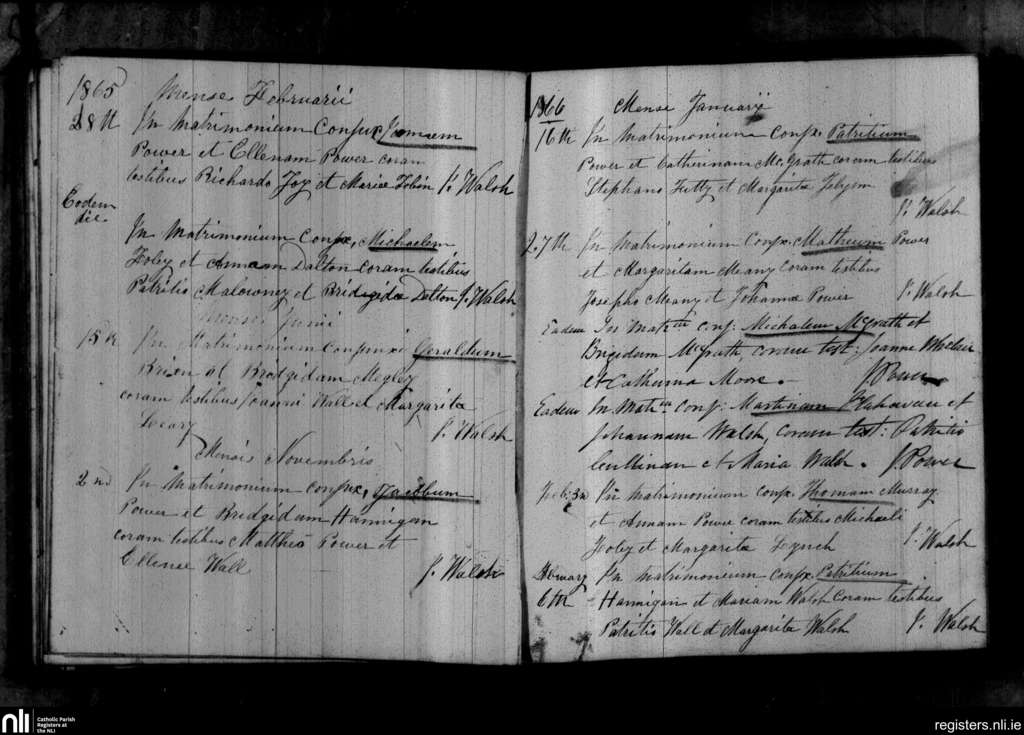 1865 Mense Februarii
28th In Matrimonium Conjux
Power et Ellenam Power coram
testibus Richardo Foy et Mariae Tobin J. Walsh
Eodem
die
In Matrimonium Conjux. Michaelem
Foley et Annam Dalton coram testibus
Patritio Malowney et Bridgida Dalton J. Walsh
Mense Junii
15th In Matrimonium Conjunxi Geraldum
Brien et Bridgidam
coram testibus Joanni Wall et Margarita
Leary J. Walsh
Mense Novembris
2nd In Matrimonium conjux. Jacobum
Power et Bridgidam Hannigan
coram testibus Mattheo Power et
Ellenae Wall J. Walsh
1866 Mense Januarii
16th In Matrimonium conjx. Patritium
Power et Catherinam McGrath coram testibus
Stephano et Margarita
J. Walsh
27th In Matrimonium Conjx. Matheum Power
et Margaritam Meany coram testibus
Josepho Meany et Johanna Power J. Walsh
Eadem In Matrim conj: Michalem McGrath et
Brigidam McGrath, coram test: Joanne
et Catherina Moore. J Power
Eadem In Matrim conj: Martinum et
Johannam Walsh, coram test: Patritio
et Maria Walsh. J. Power
In Matrimonium conjx. Thomam Murray
et Annam Power coram testibus Michaeli
Foley et Margarita Lynch J. Walsh
In Matrimonium conjx. Patritium
6th Hannigan et Mariam Walsh coram testibus
Patritio Wall et Margarita Walsh J. Walsh
nli Catholic Parish
Registers at
the NLI
registers.nli.ie